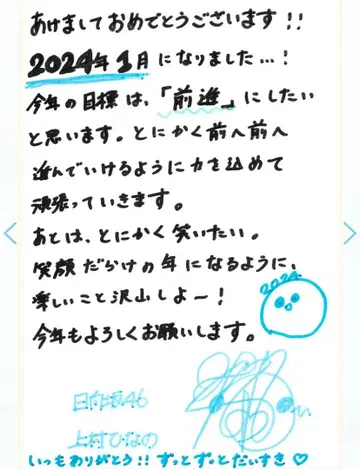 あけましておめでとうございます!!
2024年1月になりました…!
今年の目標は、「前進」にしたい
と思います。とにかく前へ前へ
進んでいけるように力を込めて
頑張っていきます。
あとは、とにかく笑いたい。
笑顔だらけの年になるように、
楽しいこと沢山しよ〜!
2024
今年もよろしくお願いします。
日向坂46
上村ひなの
いつもありがとう!!ずっとずっとだいすき♡